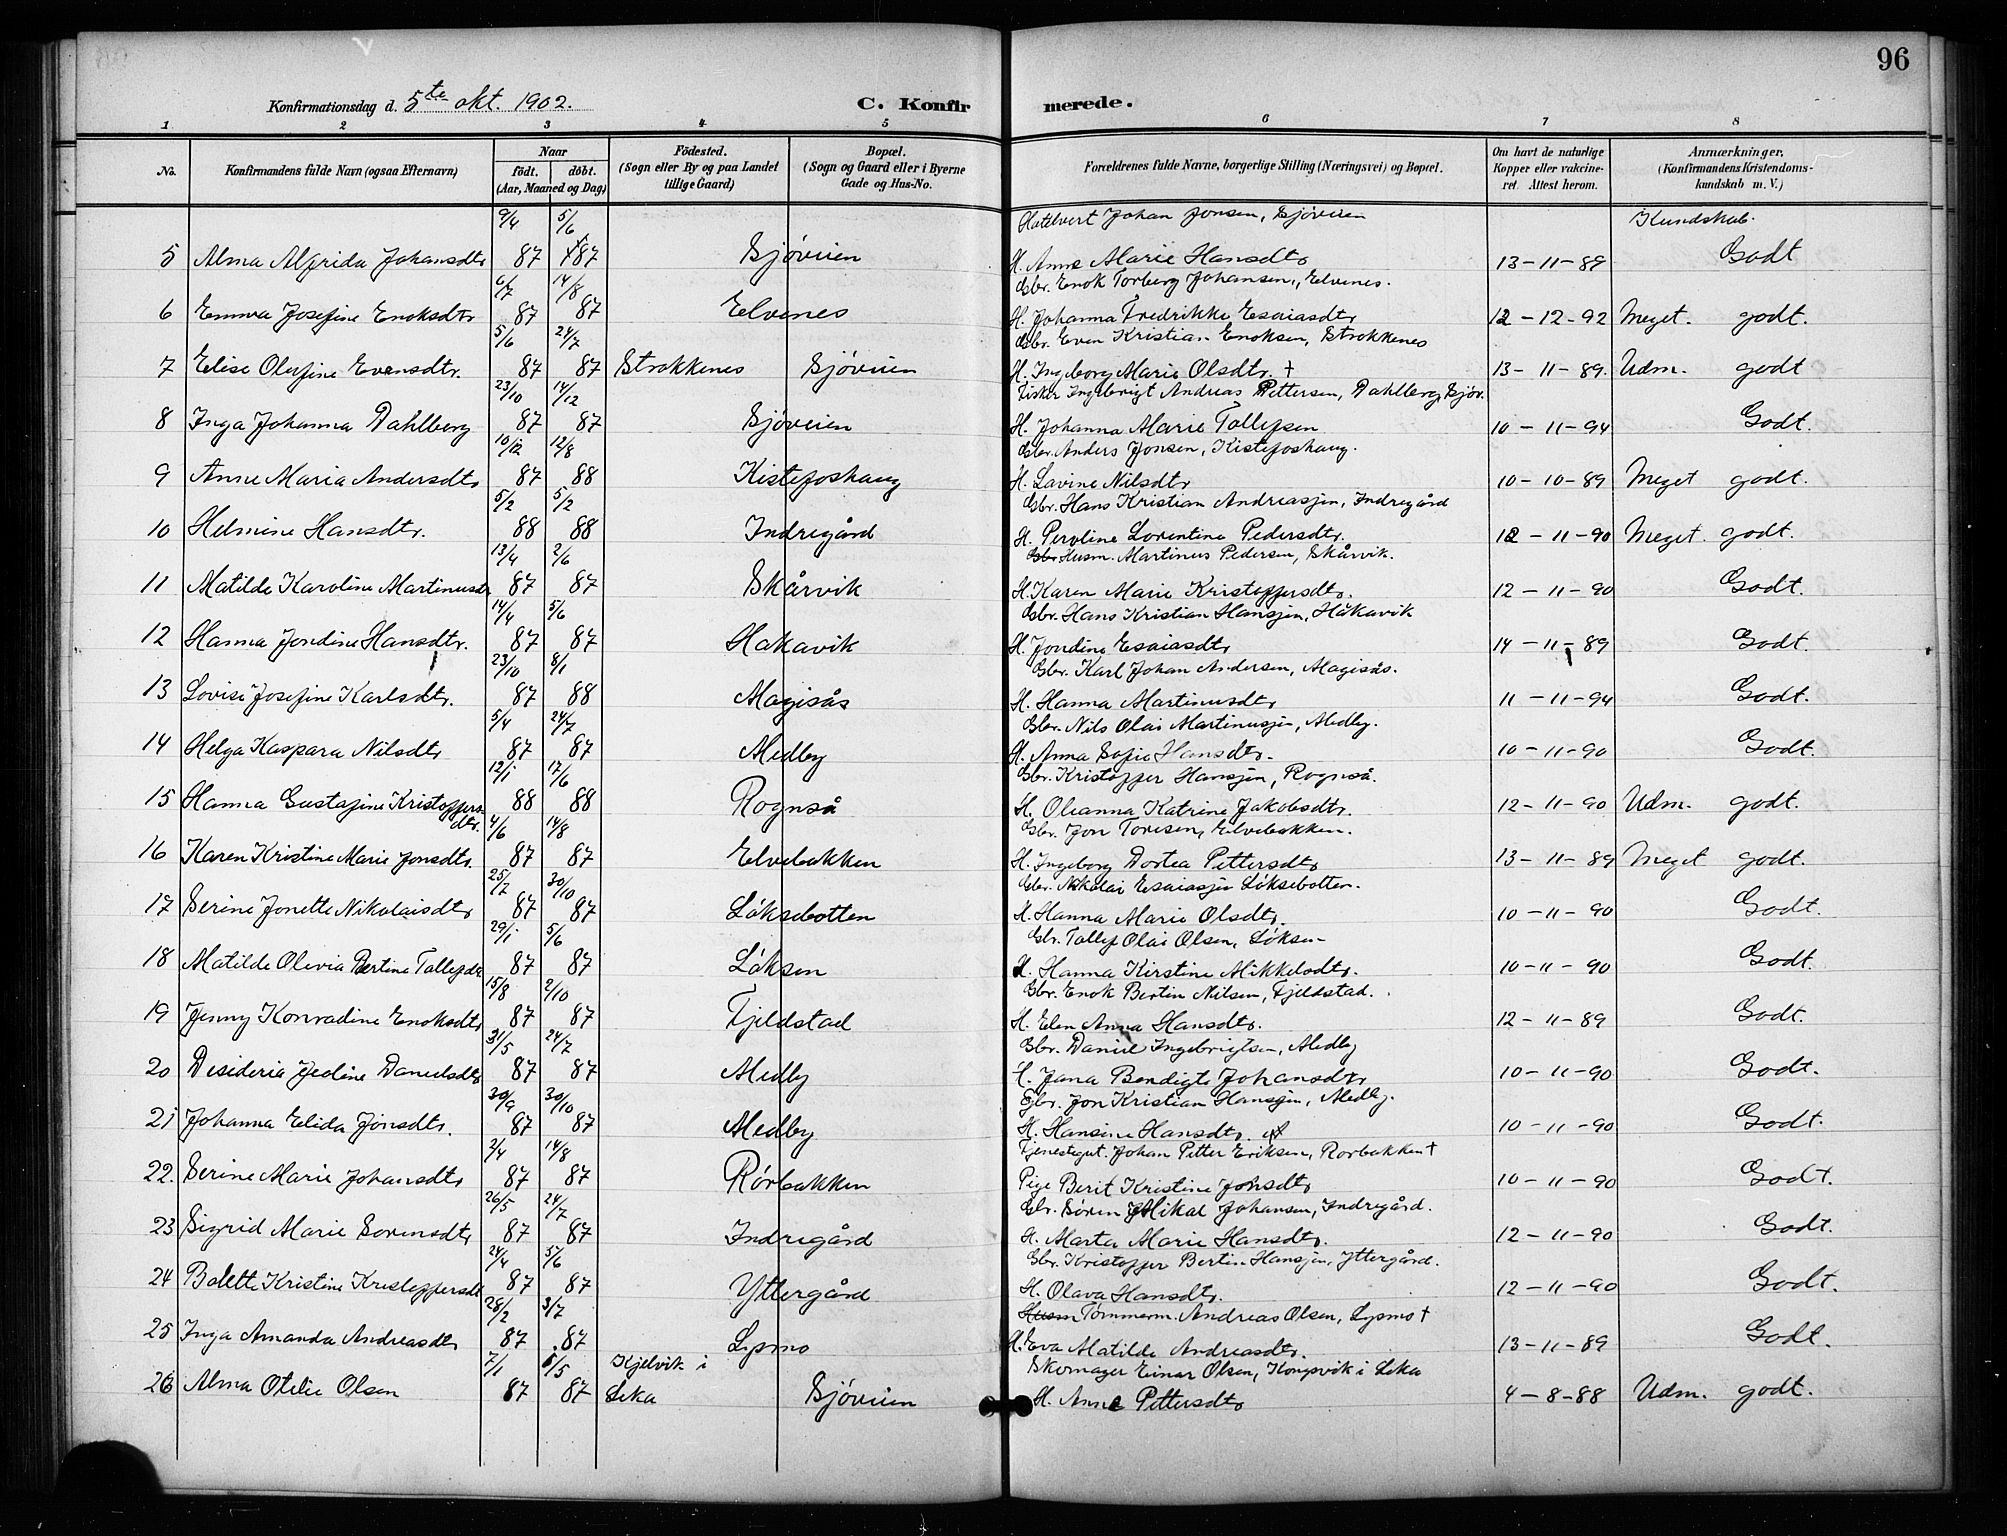 96
Konfirmationsdag d. 5te okt. 1902.
C. Konfirmerede.
1 2 3 4 5 6 7 8
No. Konfirmandens fulde Navn (ogsaa Efternavn) Naar født. døbt. (Aar, Maaned og Dag) Fødested. (Sogn eller By og paa Landet tillige Gaard) Bopæl. (Sogn og Gaard eller i Byerne Gade og Hus-No. Forældrenes fulde Navne, borgerlige Stilling (Næringsvei) og Bopæl. Om havt de naturlige Kopper eller vakcineret. Attest herom. Anmærkninger, (Konfirmandens Kristendomskundskab m. V.)
9/4 5/6 Johan Jonsen, Sjøveien Kundskab.
5 Alma Alfrida Johansdtr 87 87 Sjøveien H. Anne Marie Hansdtr 13-11-89 Godt
6/7 14/8 Gbr. Enok Torberg Johansen, Elvenes.
6 Emma Josefine Enoksdtr 87 87 Elvenes H. Johanna Fredrikke Esaiasdtr 12-12-92 Meget. godt.
5/6 24/7 Gbr. Even Kristian Enoksen, Strokkenes
7 Elise Olufine Evensdtr. 87 87 Strokkenes Sjøveien H. Ingeborg Marie Olsdtr. † 13-11-89. Udm. godt
23/10 14/12 Fisker Ingebrigt Andreas Pettersen, Dahlberg, Sjøv.
8 Inga Johanna Dahlberg 87 87 Sjøveien H. Johanna Marie Tollefsen 10-11-94 Godt.
10/12 12/8 Gbr. Anders Jonsen, Kistefoshaug.
9 Anne Maria Andersdtr 87 88 Kistefoshaug H. Lavine Nilsdtr 10-10-89 Meget godt.
5/2 5/2 Gbr. Hans Kristian Andreassen, Indregård
10 Helmine Hansdtr. 88 88 Indregård H. Peroline Lorentine Pedersdtr. 12-11-90 Meget. godt.
13/4 2/6 Husm. Martinus Pedersen, Skårvik.
11 Matilde Karoline Martinusdtr 87 87 Skårvik H. Karen Marie Kristoffersdtr. 12-11-90 Godt.
14/4 5/6 Gbr. Hans Kristian Hansen, Håkavik
12 Hanna Jondine Hansdtr. 87 87 Hakavik H. Jondine Esaiasdtr 14-11-89 Godt.
23/10 8/1 Gbr. Karl Johan Andersen, Magisås.
13 Lovise Josefine Karlsdtr. 87 88 Magisås H. Hanna Martinusdtr 11-11-94 Godt.
5/4 24/7 Gbr. Nils Olai Martinusen, Medby.
14 Helga Kaspara Nilsdtr 87 87 Medby H. Anna Sofie Hansdtr. 10-11-90 Godt.
12/1 17/6 Gbr. Kristoffer Hansen, Rognså.
15 Hanna Gustafine Kristoffersdtr. 88 88 Rognså H. Oleanna Katrine Jakobsdtr. 12-11-90 Udm. godt.
4/6 14/8 Gbr. Jon Toresen, Elvebakken.
16 Karen Kristine Marie Jonsdtr. 87 87 Elvebakken H. Ingeborg Dortea Pettersdtr 13-11-89 Meget godt.
25/7 30/10 Gbr. Nikolai Esaiassen Løksebotten.
17 Serine Jonette Nikolaisdtr 87 87 Løksebotten H. Hanna Marie Olsdtr. 10-11-90 Godt.
29/1 5/6 Gbr. Tollef Olai Olsen, Løksen
18 Matilde Olivia Bertine Tollefsdtr 87 87 Løksen H. Hanna Kirstine Mikkelsdtr. 10-11-90 Godt.
15/8 2/10 Gbr. Enok Bertin Nilsen, Fjeldstad.
19 Jenny Konradine Enoksdtr 87 87 Fjeldstad H. Elen Anna Hansdtr. 12-11-89 Godt.
31/5 24/7 Gbr. Daniel Ingebrigtsen, Medby
20 Desideria Jedine Danielsdtr 87 87 Medby H. Jana Bendigte Johansdtr 10-11-90 Godt.
30/9 30/10 Gbr. Jon Kristian Hansen, Medby.
21 Johanna Elida Jonsdtr. 87 87 Medby H. Hansine Hansdtr. 10-11-90 Godt.
2/4 14/8 Tjenestegut. Johan Petter Eriksen, Rorbakken †
22. Serine Marie Johansdtr 87 87 Rørbakken Pige Berit Kristine Jonsdtr 10-11-90 Godt.
26/5 24/7 Gbr. Søren Mikal Johansen, Indregård.
23 Sigrid Marie Sorensdtr 87 87 Indregård H. Marta Marie Hansdtr. 12-11-90 Godt.
24/4 5/6 Gbr. Kristoffer Bertin Hansen, Yttergård.
24 Bolette Kristine Kristoffersdtr 87 87 Yttergård H. Olava Hansdtr. 12-11-90 Godt.
28/2 3/7 Husm Tømmerm. Andreas Olsen, Lysmo †
25 Inga Amanda Andreasdtr 87 87 Lysmo H. Eva Matilde Andreasdtr. 13-11-89 Godt.
7/1 6/5 Kjelvik i Leka Skomager Einar Olsen, i Leka
26 Alma Otelie Olsen 87 87 Sjøveien H. Anne Pettersdtr 4-8-88 Udm. godt.